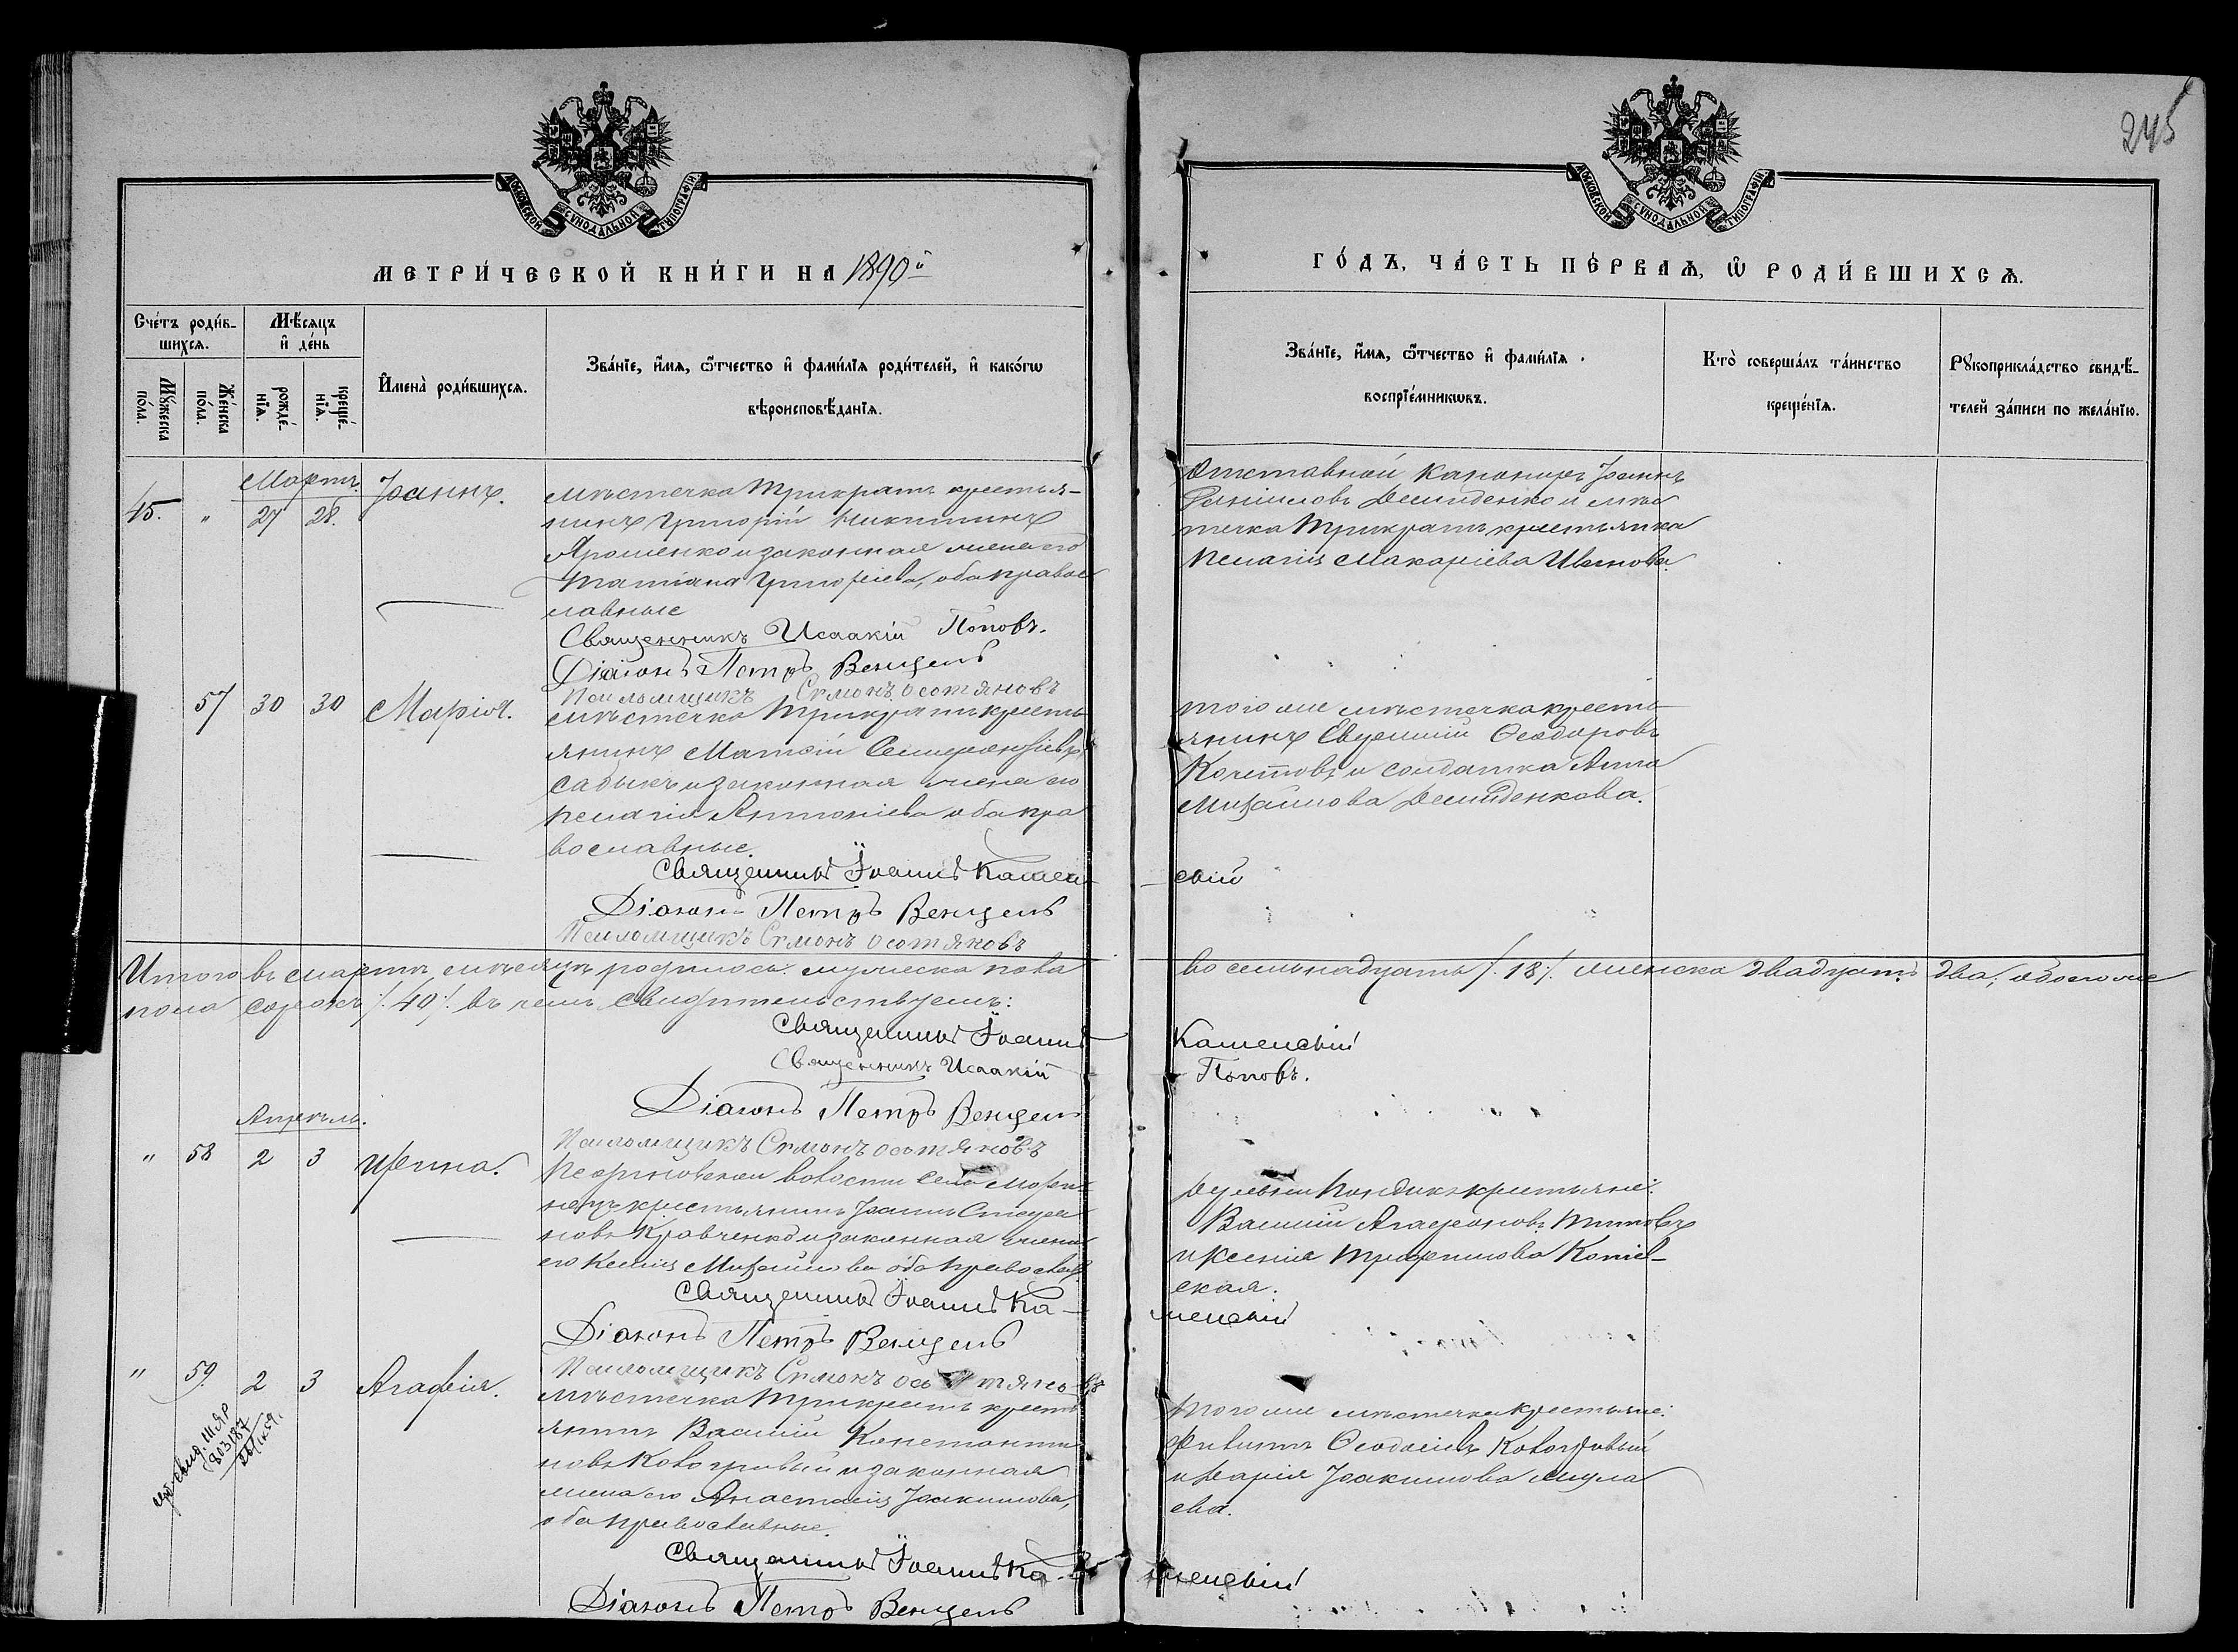 245
МОСКОВСКОЙ СУНОДАЛЬНОЙ ТИПОГРАФІИ
МЕТРИ́ЧЕСКОЙ КНИ́ГИ НА 1890й
Сче́тъ роди́в-
шихсѧ.
Мѣ́сѧцъ
и҆ де́нь
Мꙋ́жеска
по́ла.
Же́нска
по́ла.
рожде́-
нїѧ.
креще́-
нїѧ.
И҆мена̀ роди́вшихсѧ.
Зва́нїе, и҆́мѧ, ѻ҆́тчество и҆ фами́лїѧ роди́телей, и҆ како́гѡ
вѣроисповѣ́данїѧ.
Мартъ.
45. " 27 28. Іоаннъ.
мѣстечка Трикратъ крестья-
нинъ Григорій Никитинъ
Ярошенко и законная жена его
Татіана Григоріева, оба правос
лавные
Священникъ Исаакій Поповъ.
Діаконъ Петръ Венцель
Псаломщикъ Сѵмонъ Осотяновъ
57 30 30 Марія.
мѣстечка Трикратъ кресть
янинъ Матѳій
и законная жена его
Пелагія Антоніева оба пра
вославные.
Священникъ Іоаннъ Камен-
Діаконъ Петръ Венцель
Псаломщикъ Сѵмонъ Осотяновъ
Итого въ мартѣ мѣсяцѣ родилось: мужеска пола
пола сорокъ /.40/. въ чемъ свидѣтельствуемъ:
Священникъ Іоаннъ
Священникъ Исаакій
Діаконъ Петръ Венцель
Псаломщикъ Сѵмонъ Осотяновъ
Апрѣль.
" 58 2 3 Ирина.
волости села Мари-
крестьянинъ Іоаннъ Стефа
новъ Кравченко и законная жена
его Ксенія Михайлова оба православ
Священникъ Іоаннъ Ка-
Діаконъ Петръ Венцель
" 59. 2 3 Агафія.
Псаломщикъ Сѵмонъ Осотяновъ
мѣстечка Трикратъ кресть
янинъ Василій Константи
новъ Ковогривый и законная
жена его Анастасія Іоакимова,
оба православные.
Священникъ Іоаннъ Ка-
Діаконъ Петръ Венцель
803187
ГО́ДЪ, ЧА́СТЬ ПЕ́РВАѦ, Ѡ҆ РОДИ́ВШИХСѦ.
МОСКОВСКОЙ СУНОДАЛЬНОЙ ТИПОГРАФІИ
Зва́нїе, и҆́мѧ, ѻ҆́тчество и҆ фами́лїѧ
воспрїе́мникѡвъ.
Кто̀ соверша́лъ та́инство
креще́нїѧ.
Рꙋкоприкла́дство свидѣ́-
телей за́писи по жела́нїю.
Отставной Канониръ Іоаннъ
Даніиловъ Демиденко и мѣс
течка Трикратъ крестьянка
Пелагія Макаріева Иванова.
того же мѣстечка кресть
янинъ Евѳимій Ѳеодоровъ
Кочетовъ и солдатка Анна
Михайлова Демиденкова.
скій
восемьнадцать /.18/. женска двадцать два, обоего же
Каменскій
Поповъ.
деревни крестьяне:
Василій Агаѳоновъ Титовъ
и Ксенія Трофимова Коніев-
ская.
менскій
того же мѣстечка крестьяне:
Филиппъ Ѳеодосіевъ Ковогривый
и Марія Іоакимова
ева.
менскій